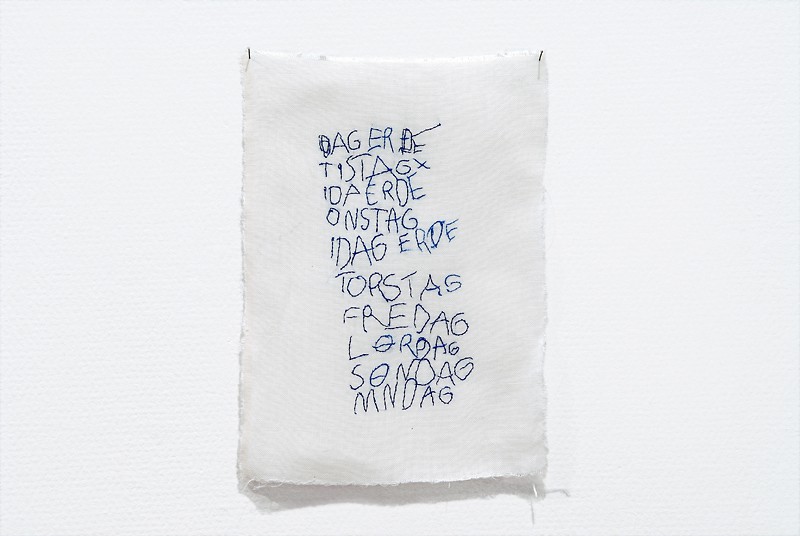 DAG ER DE
TISTAGX
IDA ERDE
ONSTAG
IDAG ERDE
TORSTAG
FREDAG
LØRDAG
SØNDAG
MNDAG